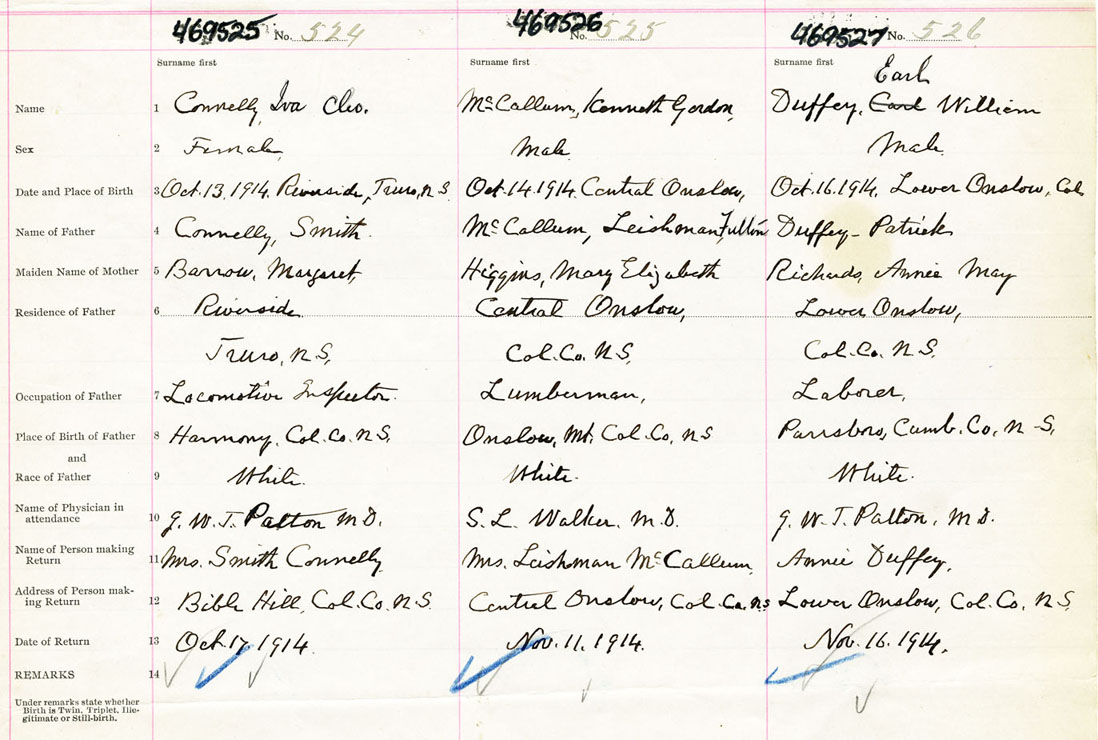 469525 No. 524 469526 No. 525 469527 No. 526
Surname first Surname first Surname first
Earl
Name 1 Connelly, Iva Cleo. McCallum, Kenneth Gordon, Duffey, Earl William
Sex 2 Female, Male. Male.
Date and Place of Birth 3 Oct. 13, 1914. Riverside, Truro, N.S. Oct. 14. 1914. Central Onslow, Oct. 16. 1914, Lower Onslow, Col.
Name of Father 4 Connelly, Smith. McCallum, Leishman Fulton Duffey - Patrick
Maiden Name of Mother 5 Barrow, Margaret, Higgins, Mary Elizabeth Richards, Annie May
Residence of Father 6 Riverside Central Onslow, Lower Onslow,
Truro, N.S, Col. Co. N.S, Col. Co. N.S.
Occupation of Father 7 Locomotive Inspector. Lumberman, Laborer,
Place of Birth of Father 8 Harmony, Col. Co. N.S. Onslow, Mt. Col. Co, N.S Parrsboro, Cumb. Co, N-S,
and
Race of Father 9 White. White. White.
Name of Physician in
attendance 10 G. W. T. Patton M.D. S. L. Walker. M.D. G. W. T. Patton, M.D.
Name of Person making
Return 11 Mrs. Smith Connelly Mrs. Leishman McCallum, Annie Duffey,
Address of Person mak-
ing Return 12 Bible Hill, Col. Co. N.S. Central Onslow, Col. Co. N.S Lower Onslow, Col. Co. N.S,
Date of Return 13 Oct. 17, 1914. Nov. 11. 1914. Nov. 16. 1914.
REMARKS 14
Under remarks state whether
Birth is Twin, Triplet, Ille-
gitimate or Still-birth.